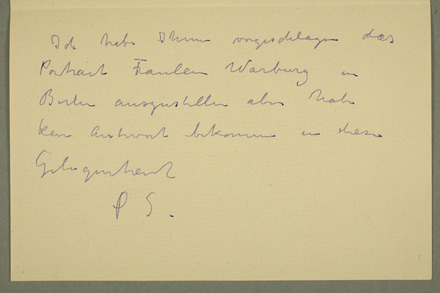 Ich habe Ihnen vorgeschlagen das
Portrait Fraulen Warburg in
Berlin auszustellen aber habe
kein Antwort bekommen in diese
Gelegenheit
P S.